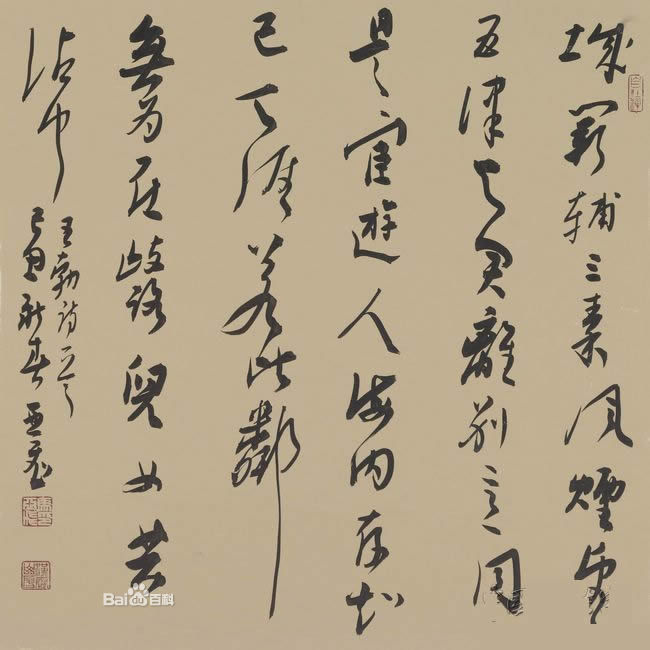 城闕輔三秦風煙望
五津与君離別意同
是宦遊人海内存知
己天涯若比鄰
無为在歧路兒女共
沾巾
王勃诗一首
己丑新春
Bai百科